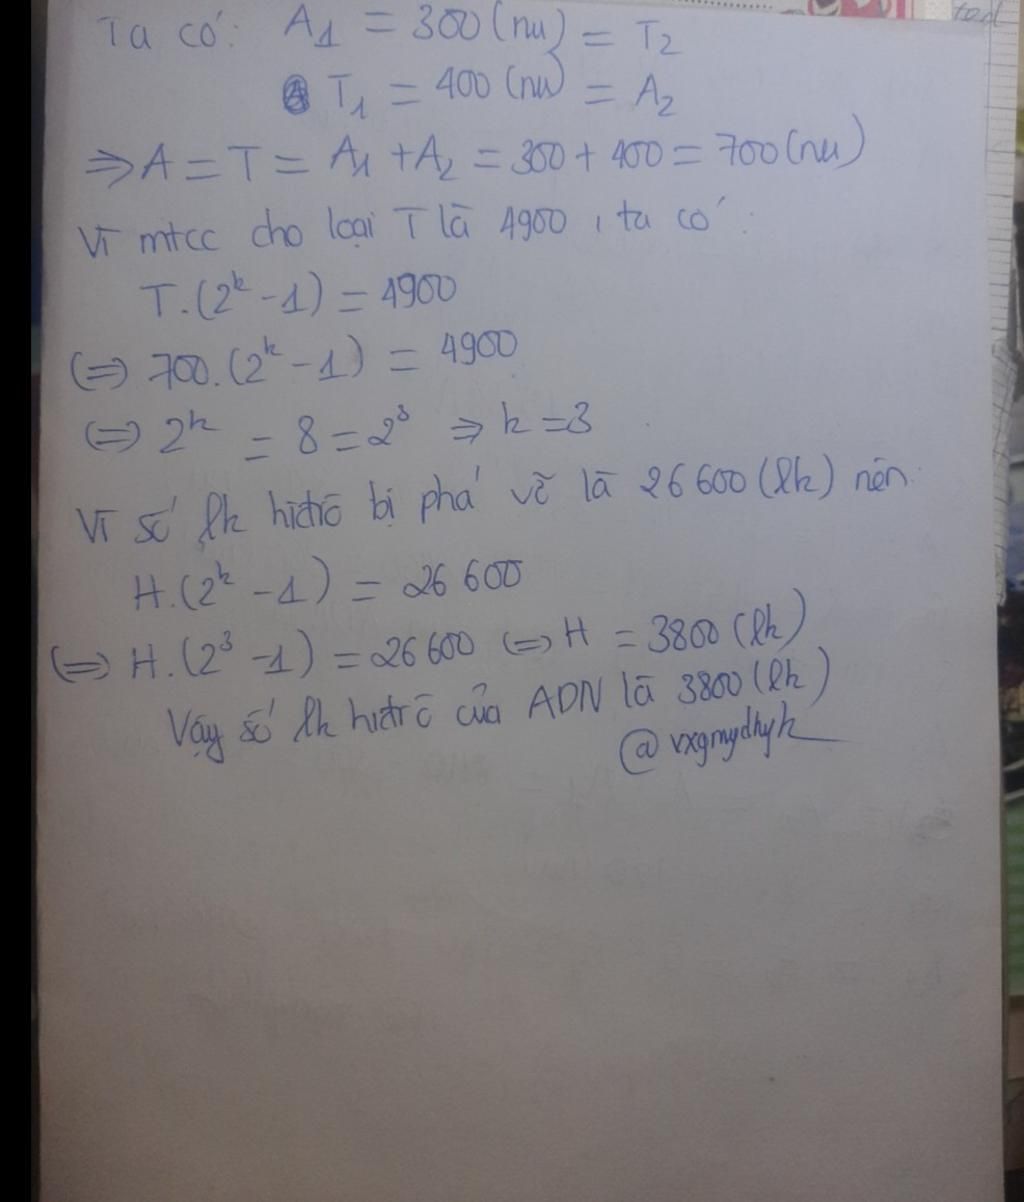 Ta có: A₁ = 300 (nu) = T₂
T₁ = 400 (nu) = A₂
⇒ A = T = A₁ + A₂ = 300 + 400 = 700 (nu)
Vì mtcc cho loại T là 4900, ta có:
T.(2ᵏ - 1) = 4900
(⇒) 700.(2ᵏ - 1) = 4900
(⇒) 2ᵏ = 8 = 2³ ⇒ k = 3
Vì số lk hiđrô bị phá vỡ là 26 600 (lk) nên:
H.(2ᵏ - 1) = 26 600
(⇒) H.(2³ - 1) = 26 600 (⇒) H = 3800 (lk)
Vậy số lk hiđrô của ADN là 3800 (lk)
@vxgmydhyk